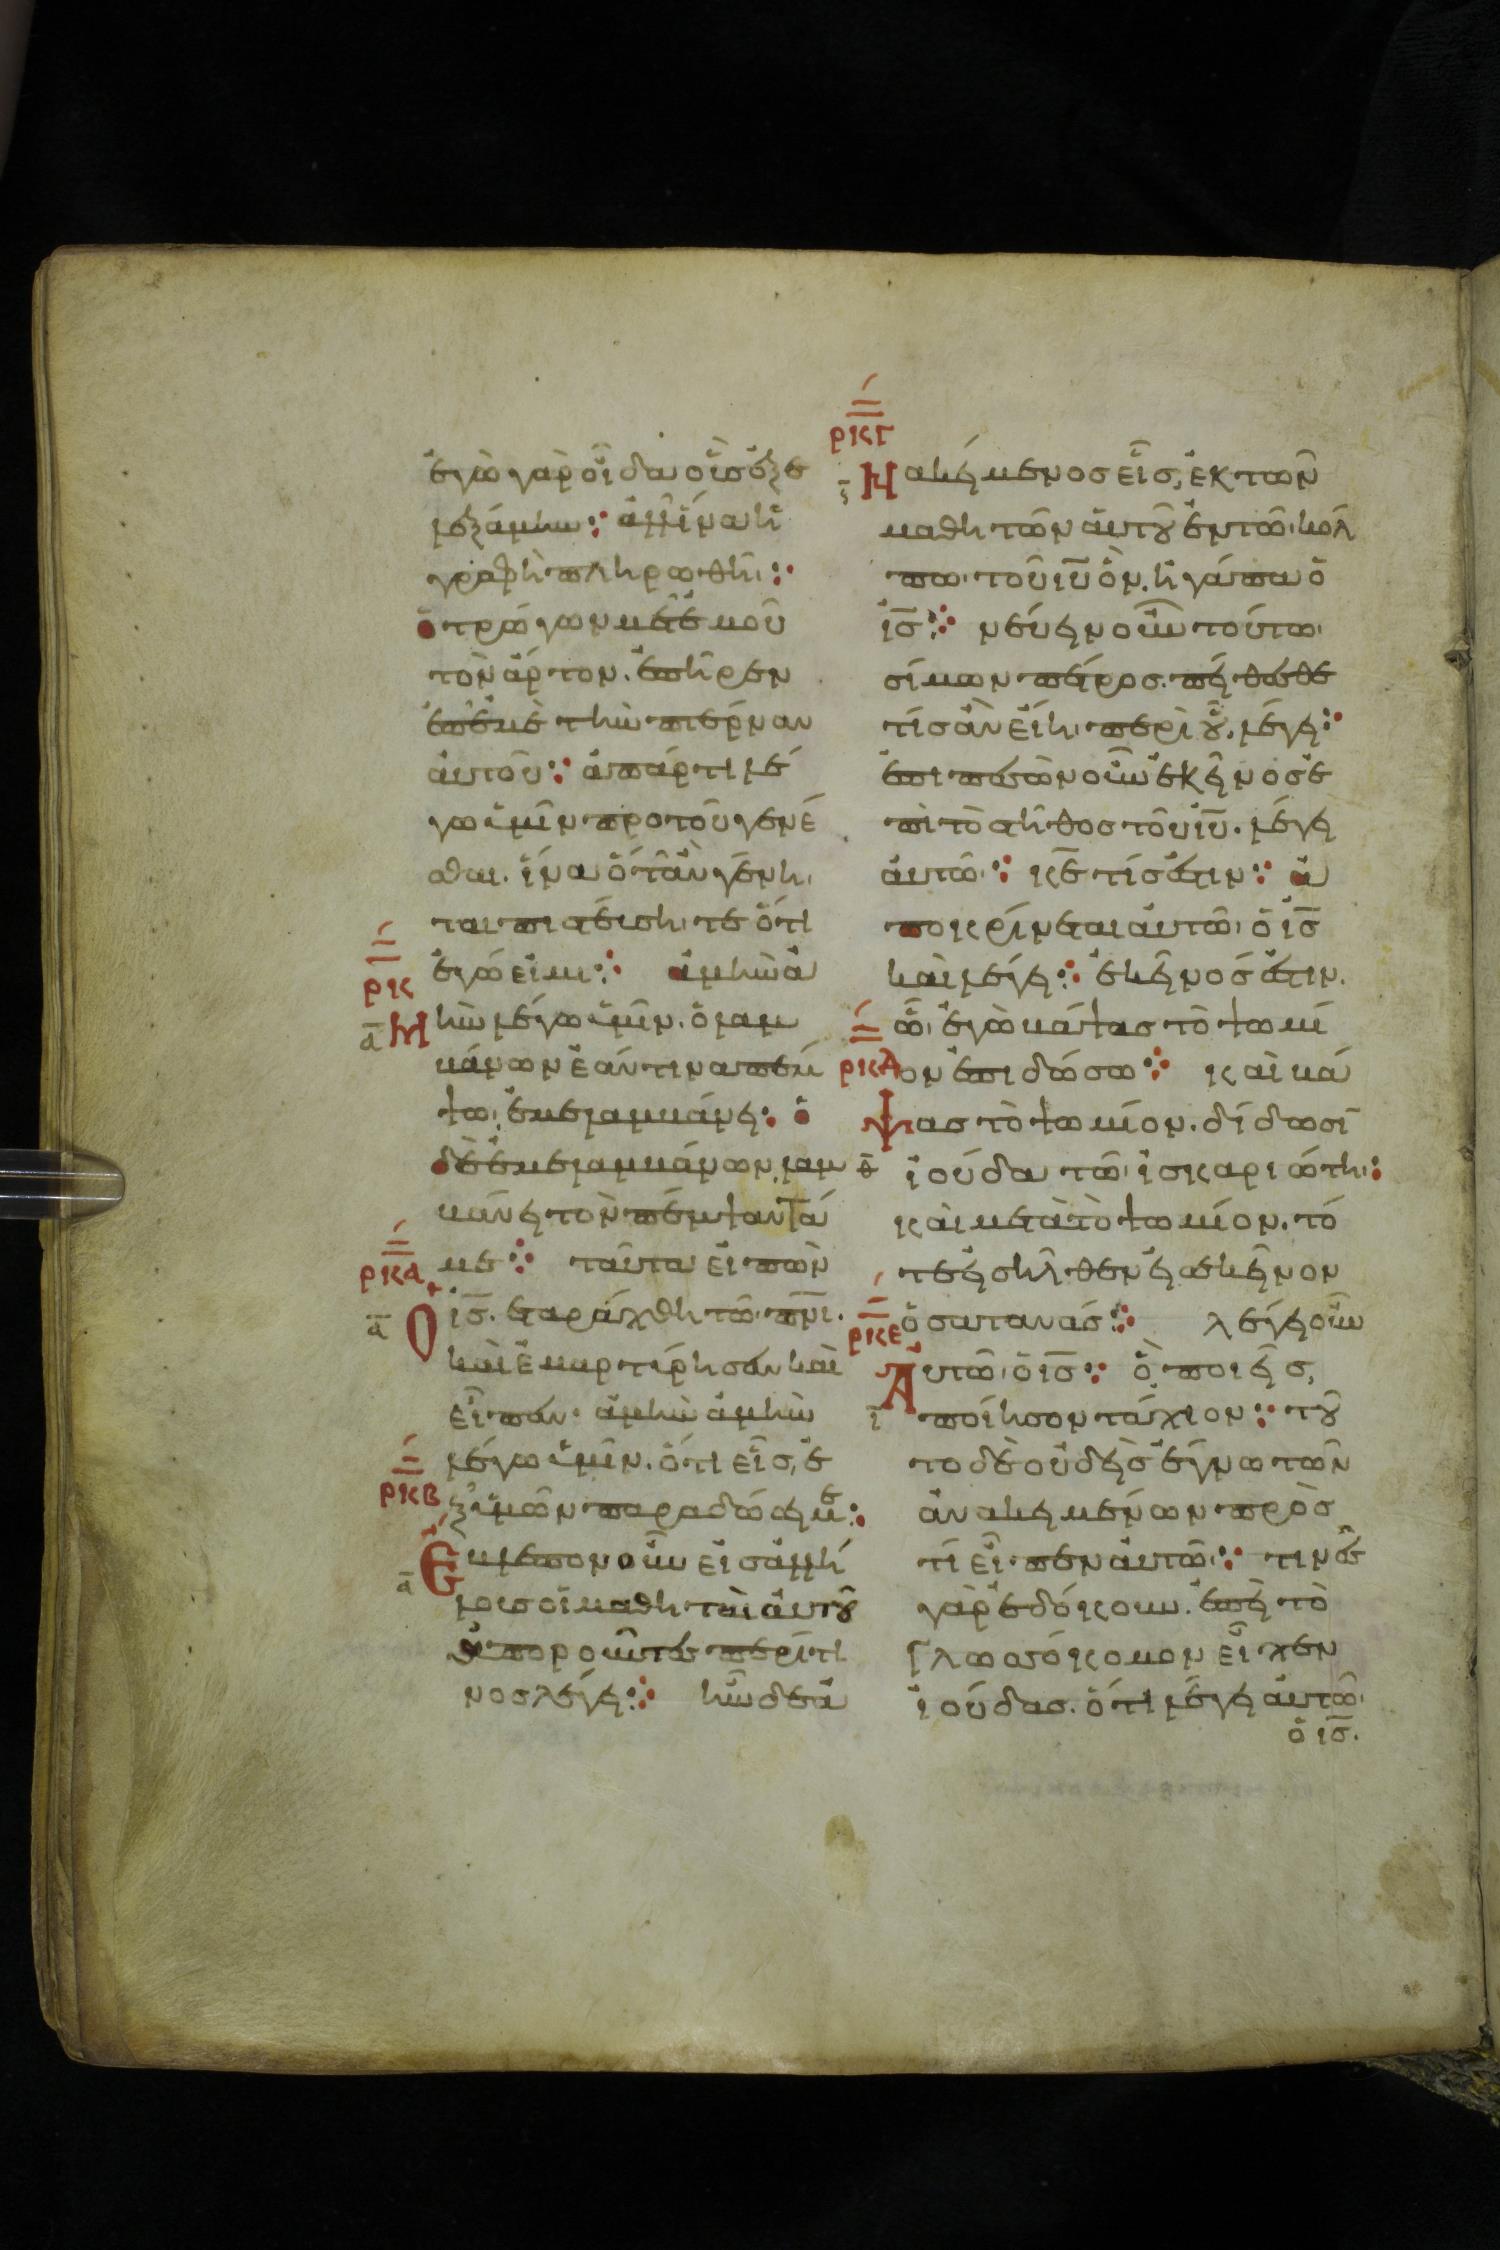 ἐγὼ γὰρ οἶδα οὓσ ἐξε
λεξάμην· ἀλλ ἵνα ἡ
γραφὴ πληρωθῆ·
ὁ τρώγων μετ ἐμοῦ
τὸν ἄρτον. ἐπῆρεν
ἐπ ἐμὲ τὴν πτέρναν
αὐτοῦ· ἀπάρτι λέ
γω ὑμῖν προ τοῦ γενέ
σθαι. ἵνα ὅταν γένη
ται πιστεύσητε ὅτι
ἐγώ εἰμι· ἀμὴν ἀ
ρκ
α
μὴν λέγω ὑμῖν. ὁ λαμ
βάνων ἐάν τινα πέμ
ψω, ἐμε λαμβάνει· ὁ
δὲ ἐμε λαμβάνων, λαμ
βάνει τὸν πέμψαντά
με· ταῦτα εἰπὼν
ρκα
α
Ὁ ισ. εταράχθη τῶ πνι.
καὶ ἐμαρτύρησάν καὶ
εἶπάν· ἀμὴν ἀμὴν
λέγω ὑμῖν. ὅτι εἷσ, ἐ
ξ ὑμῶν παραδώσει με·
ρκβ
α
Εβλεπον οὖν εἰσ ἀλλή
λουσ οἱ μαθηταὶ αὐτου
ἀπορουντεσ περὶ τι
νοσ λέγει· ἦν δε ἀ
ρκγ
ι
Νακείμενοσ εἷσ, ἐκ τῶν
μαθητῶν αὐτου ἐν τῶ κολ
πω τοῦ ιυ ὃν ἠγάπα ὁ
ισ· νεύει οὖν τούτω
σίμων πέτροσ. πείθεσθε
τίσ ἂν εἴη περὶ οὗ λέγει·
ἐπι πεσὼν οὖν ἐκεῖνοσ ἐ
πὶ τὸ στῆθοσ τοῦ ιυ. λέγει
αὐτῶ· κε τίσ ἐστιν· ἀ
ποκρίνεται αὐτῶ ὁ ισ
καὶ λέγει· ἐκεῖνόσ ἐστιν.
ὧ ἐγὼ βάψασ τὸ ψωμί
ρκδ
ον ἐπιδώσω· καὶ βά
θ
Ψασ τὸ ψωμίον. δίδωσι
ἰούδα τῶ ἰσκαριώτη·
καὶ μετὰ τὸ ψωμίον. τό
τε εἰσῆλθεν εἰσ ἐκεῖνον
ὁ σατανάσ· λέγει οὖν
ρκε
ι
Αὐτῶ ὁ ισ· ὃ ποιεῖσ,
ποίησον τάχιον· του
το δὲ οὐδεὶσ ἔγνω τῶν
ἀνακειμένων πρὸσ
τί εἶπεν αὐτῶ· τινεσ
γὰρ ἐδόκουν. ἐπεὶ τὸ
γλωσσόκομον εἶχεν
ἰούδασ. ὅτι λέγει αὐτῶ
ὁ ισ.